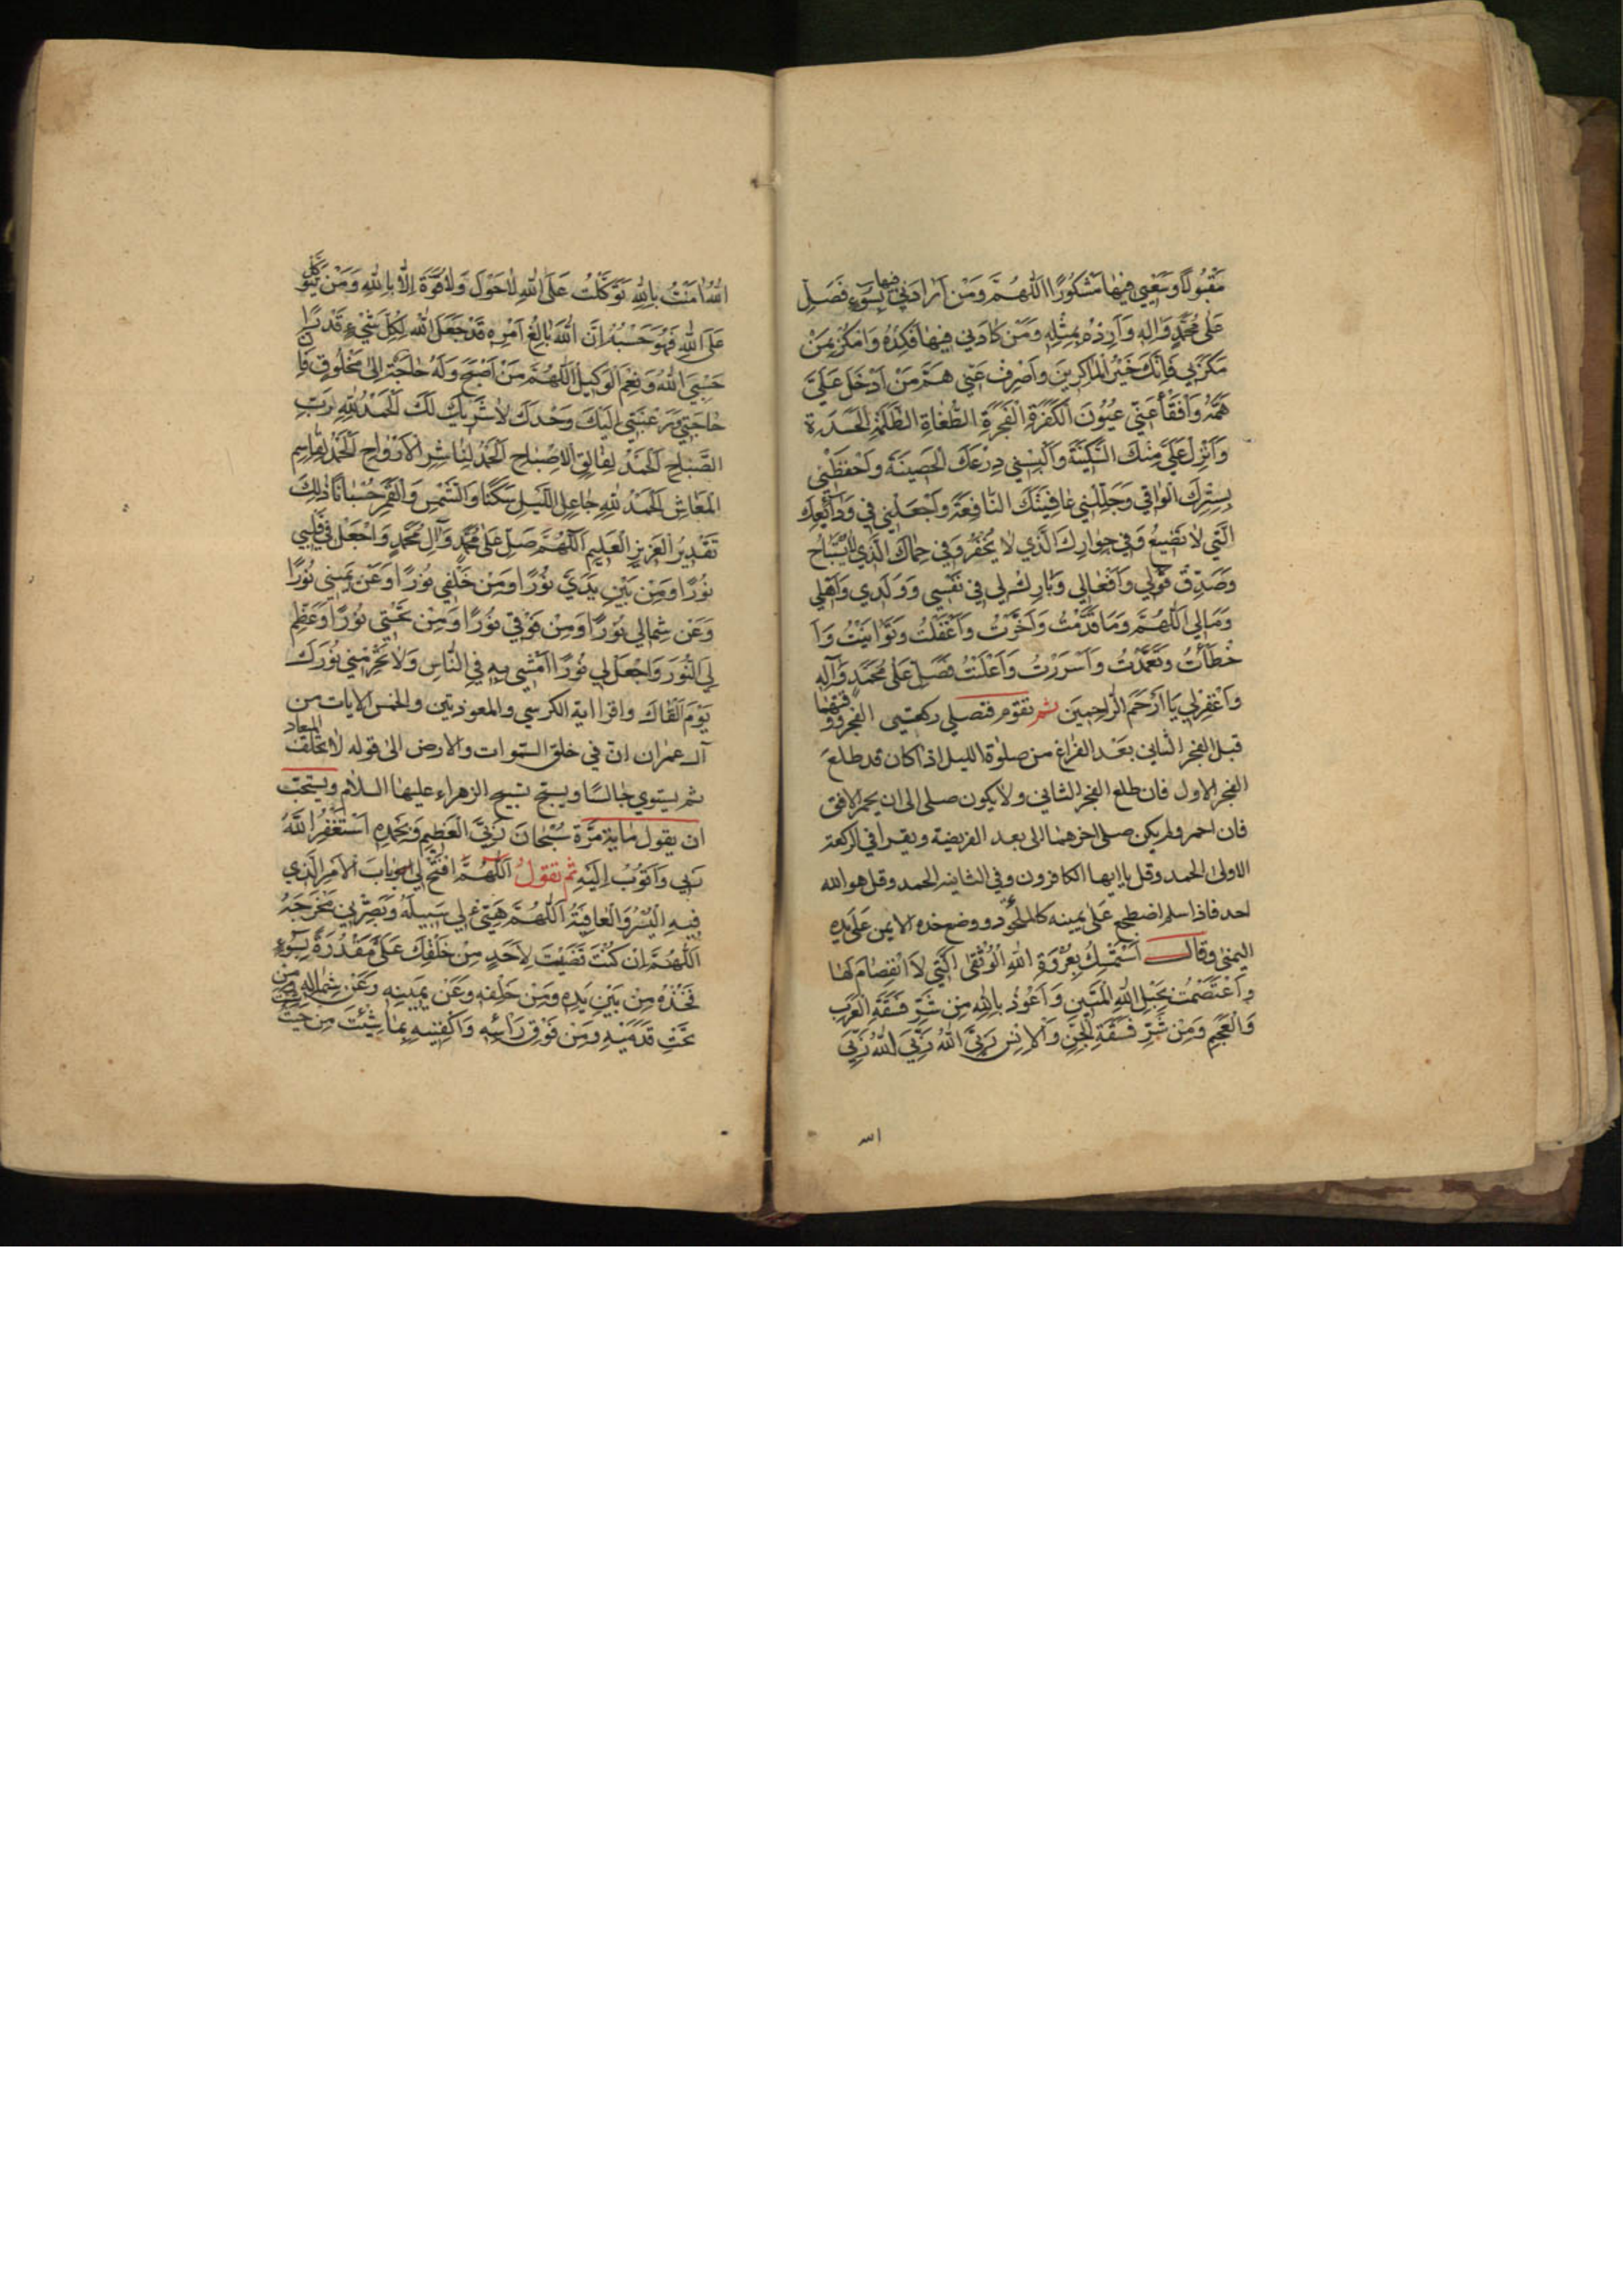 مَقْبُولًا وَسَعْيِي فِيهَا مَشْكُورًا اَللّٰهُمَّ وَمَنْ اَرَادَنِي فيها بِسُوءٍ فَصَلِّ
عَلٰى مُحَمَّدٍ وَاٰلِهِ وَاَرِدْهُ بِمِثْلِهِ وَمَنْ كَادَنِي فِيهَا فَكِدْهُ وَامْكُرْ بِمَنْ
مَكَرَ بِي فَاِنَّكَ خَيْرُ الْمَاكِرِينَ وَاَصْرِفْ عَنِّي هَمَّ مَنْ اَدْخَلَ عَلَيَّ
هَمَّهُ وَافْقَأْ عَنِّي عُيُونَ الْكَفَرَةِ الْفَجَرَةِ الطُّغَاةِ الظَّلَمَةِ الْحَسَدَةِ
وَاَنْزِلْ عَلَيَّ مِنْكَ السَّكِينَةَ وَاَلْبِسْنِي دِرْعَكَ الْحَصِينَةَ وَاحْفَظْنِي
بِسِتْرِكَ الْوَاقِي وَجَلِّلْنِي عَافِيَتَكَ النَّافِعَةَ وَاجْعَلْنِي فِي وَدَائِعِكَ
الَّتِي لَا تَضِيعُ وَفِي جِوَارِكَ الَّذِي لَا يُخْفَرُ وَفِي حِمَاكَ الَّذِي لَا يُسْتَبَاحُ
وَصَدِّقْ قَوْلِي وَاَفْعَالِي وَبَارِكْ لِي فِي نَفْسِي وَوَلَدِي وَاَهْلِي
وَمَالِي اَللّٰهُمَّ وَمَا قَدَّمْتُ وَاَخَّرْتُ وَاَغْفَلْتُ وَتَوَانَيْتُ وَاَ
خْطَأْتُ وَتَعَمَّدْتُ وَاَسْرَرْتُ وَاَعْلَنْتُ فَصَلِّ عَلٰى مُحَمَّدٍ وَآلِهِ
وَاغْفِرْ لِي يَا اَرْحَمَ الرَّاحِمِينَ ثم تقوم فتصلي ركعتي الفجر ووقتهما
قبل الفجر الثاني بعد الفراغ من صلوة الليل اذا كان قد طلع
الفجر الاول فان طلع الفجر الثاني ولا يكون صلى الى ان يحمر الافق
فان احمر ولم يكن صلى اخرهما الى بعد الفريضة ويقرأ في الركعة
الاولى الحمد وقل يا ايها الكافرون وفي الثانية الحمد وقل هو الله
احد فاذا سلم اضطجع على يمينه كالملحود ووضع خده الايمن على يده
اليمنى وقال اَسْتَمْسِكُ بِعُرْوَةِ اللّٰهِ الْوُثْقٰى الَّتِي لَا انْفِصَامَ لَهَا
وَاعْتَصَمْتُ بِحَبْلِ اللّٰهِ الْمَتِينِ وَاَعُوذُ بِاللّٰهِ مِنْ شَرِّ فَسَقَةِ الْعَرَبِ
وَالْعَجَمِ وَمِنْ شَرِّ فَسَقَةِ الْجِنِّ وَالْاِنْسِ رَبِّيَ اللّٰهُ رَبِّيَ اللّٰهُ رَبِّيَ
الله
اللّٰهُ اٰمَنْتُ بِاللّٰهِ تَوَكَّلْتُ عَلَى اللّٰهِ لَا حَوْلَ وَلَا قُوَّةَ اِلَّا بِاللّٰهِ وَمَنْ يَتَوَكَّلْ
عَلَى اللّٰهِ فَهُوَ حَسْبُهُ اِنَّ اللّٰهَ بَالِغُ اَمْرِهِ قَدْ جَعَلَ اللّٰهُ لِكُلِّ شَيْءٍ قَدْرًا
حَسْبِيَ اللّٰهُ وَنِعْمَ الْوَكِيلُ اَللّٰهُمَّ مَنْ اَصْبَحَ وَلَهُ حَاجَةٌ اِلٰى مَخْلُوقٍ فَاِنَّ
حَاجَتِي وَرَغْبَتِي اِلَيْكَ وَحْدَكَ لَا شَرِيكَ لَكَ الْحَمْدُ لِلّٰهِ لِرَبِّ
الصَّبَاحِ الْحَمْدُ لِفَالِقِ الْاِصْبَاحِ الْحَمْدُ لِنَاشِرِ الْاَرْوَاحِ الْحَمْدُ لِقَاسِمِ
الْمَعَاشِ الْحَمْدُ لِلّٰهِ جَاعِلِ اللَّيْلِ سَكَنًا وَالشَّمْسِ وَالْقَمَرِ حُسْبَانًا ذٰلِكَ
تَقْدِيرُ الْعَزِيزِ الْعَلِيمِ اَللّٰهُمَّ صَلِّ عَلٰى مُحَمَّدٍ وَآلِ مُحَمَّدٍ وَاجْعَلْ فِي قَلْبِي
نُورًا وَمِنْ بَيْنِ يَدَيَّ نُورًا وَمِنْ خَلْفِي نُورًا وَعَنْ يَمِينِي نُورًا
وَعَنْ شِمَالِي نُورًا وَمِنْ فَوْقِي نُورًا وَمِنْ تَحْتِي نُورًا وَعَظِّمْ
لِيَ النُّورَ وَاجْعَلْ لِي نُورًا اَمْشِي بِهِ فِي النَّاسِ وَلَا تَحْرِمْنِي نُورَكَ
يَوْمَ اَلْقَاكَ واقرا اية الكرسي والمعوذتين والخمس الايات من
آل عمران ان في خلق السموات والارض الى قوله لا تخلف الميعاد
ثم يستوي جالسًا ويسبح تسبيح الزهراء عليها السلام ويستحب
ان يقول مائة مرة سُبْحَانَ رَبِّيَ الْعَظِيمِ وَبِحَمْدِهِ اَسْتَغْفِرُ اللّٰهَ
رَبِّي وَاَتُوبُ اِلَيْهِ ثم تقول اَللّٰهُمَّ افْتَحْ لِي اَبْوَابَ الْاَمْرِ الَّذِي
فِيهِ الْيُسْرُ وَالْعَافِيَةُ اَللّٰهُمَّ هَيِّئْ لِي سَبِيلَهُ وَبَصِّرْنِي مَخْرَجَهُ
اَللّٰهُمَّ اِنْ كُنْتَ قَضَيْتَ لِاَحَدٍ مِنْ خَلْقِكَ عَلَيَّ مَقْدُرَةً بِسُوءٍ
فَخُذْهُ مِنْ بَيْنِ يَدَيْهِ وَمِنْ خَلْفِهِ وَعَنْ يَمِينِهِ وَعَنْ شِمَالِهِ وَمِنْ
تَحْتِ قَدَمَيْهِ وَمِنْ فَوْقِ رَأْسِهِ وَاكْفِنِيهِ بِمَا شِئْتَ مِنْ حَيْثُ